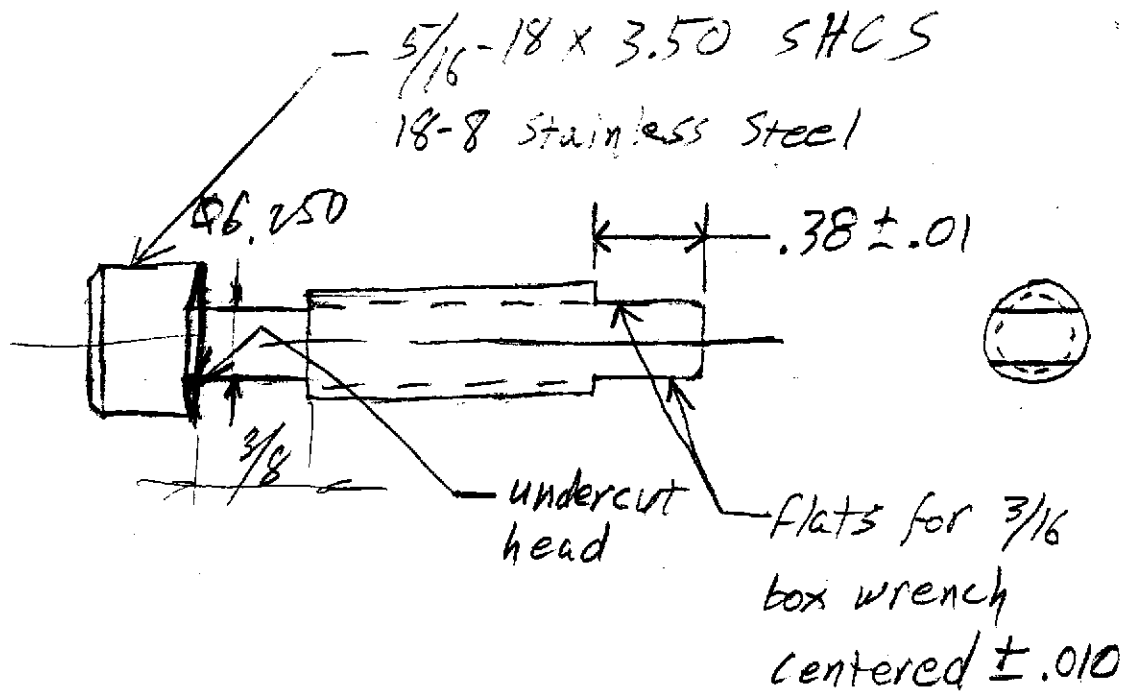 5/16-18 x 3.50 SHCS
18-8 Stainless Steel
.250
.38 ± .01
3/8
undercut
head
flats for 3/16
box wrench
centered ± .010